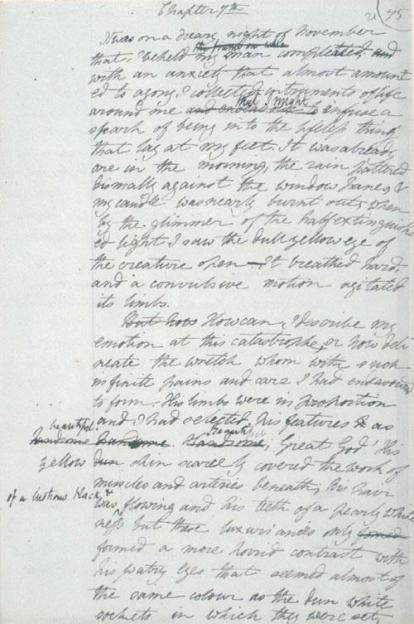 Chapter 7th
95
It was on a dreary night of November
that I beheld my man completed, and
with an anxiety that almost amount
ed to agony, I collected instruments of life
around me that I might infuse a
spark of being into the lifeless thing
that lay at my feet. It was already
one in the morning, the rain pattered
dismally against the window panes, &
my candle was nearly burnt out, when
by the glimmer of the half extinguish
ed light I saw the dull yellow eye of
the creature open — It breathed hard,
and a convulsive motion agitated
its limbs.
But how How can I describe my
emotion at this catastrophe, or how deli
neate the wretch whom with such
infinite pains and care I had endeavoured
to form. His limbs were in proportion
and I had selected his features as
beautiful
handsome handsome. Handsome; Great God! His
yellow dun skin scarcely covered the work of
muscles and arteries beneath; his hair
of a lustrous black &
was flowing and his teeth of a pearly white
ness but these luxuriances only formed
formed a more horrid contrast with
his watry eyes that seemed almost of
the same colour as the dun white
sockets in which they were set,